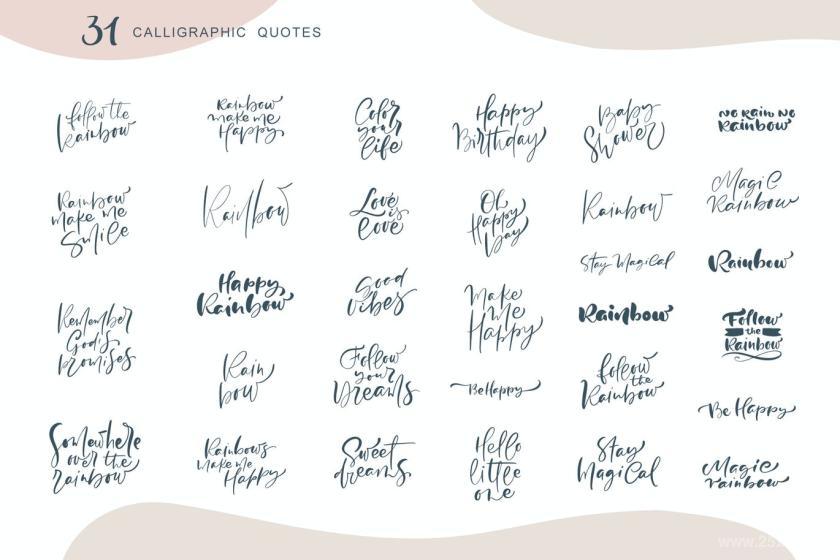 31 CALLIGRAPHIC QUOTES
follow the
Rainbow
Rainbow
make me
Smile
Remember
God's
promises
Somewhere
over the
rainbow
Rainbow
make me
Happy
Rainbow
Happy
Rainbow
Rain
bow
Rainbows
Make me
Happy
Color
your
life
Love
is
Love
Good
vibes
Follow
your
Dreams
Sweet
dreams
Happy
Birthday
Oh
Happy
Day
Make
Me
Happy
Be Happy
Hello
little
one
Baby
Shower
Rainbow
Stay Magical
Rainbow
follow
the
Rainbow
Stay
Magical
No Rain No
Rainbow
Magic
Rainbow
Rainbow
Follow
the
Rainbow
Be Happy
Magic
rainbow